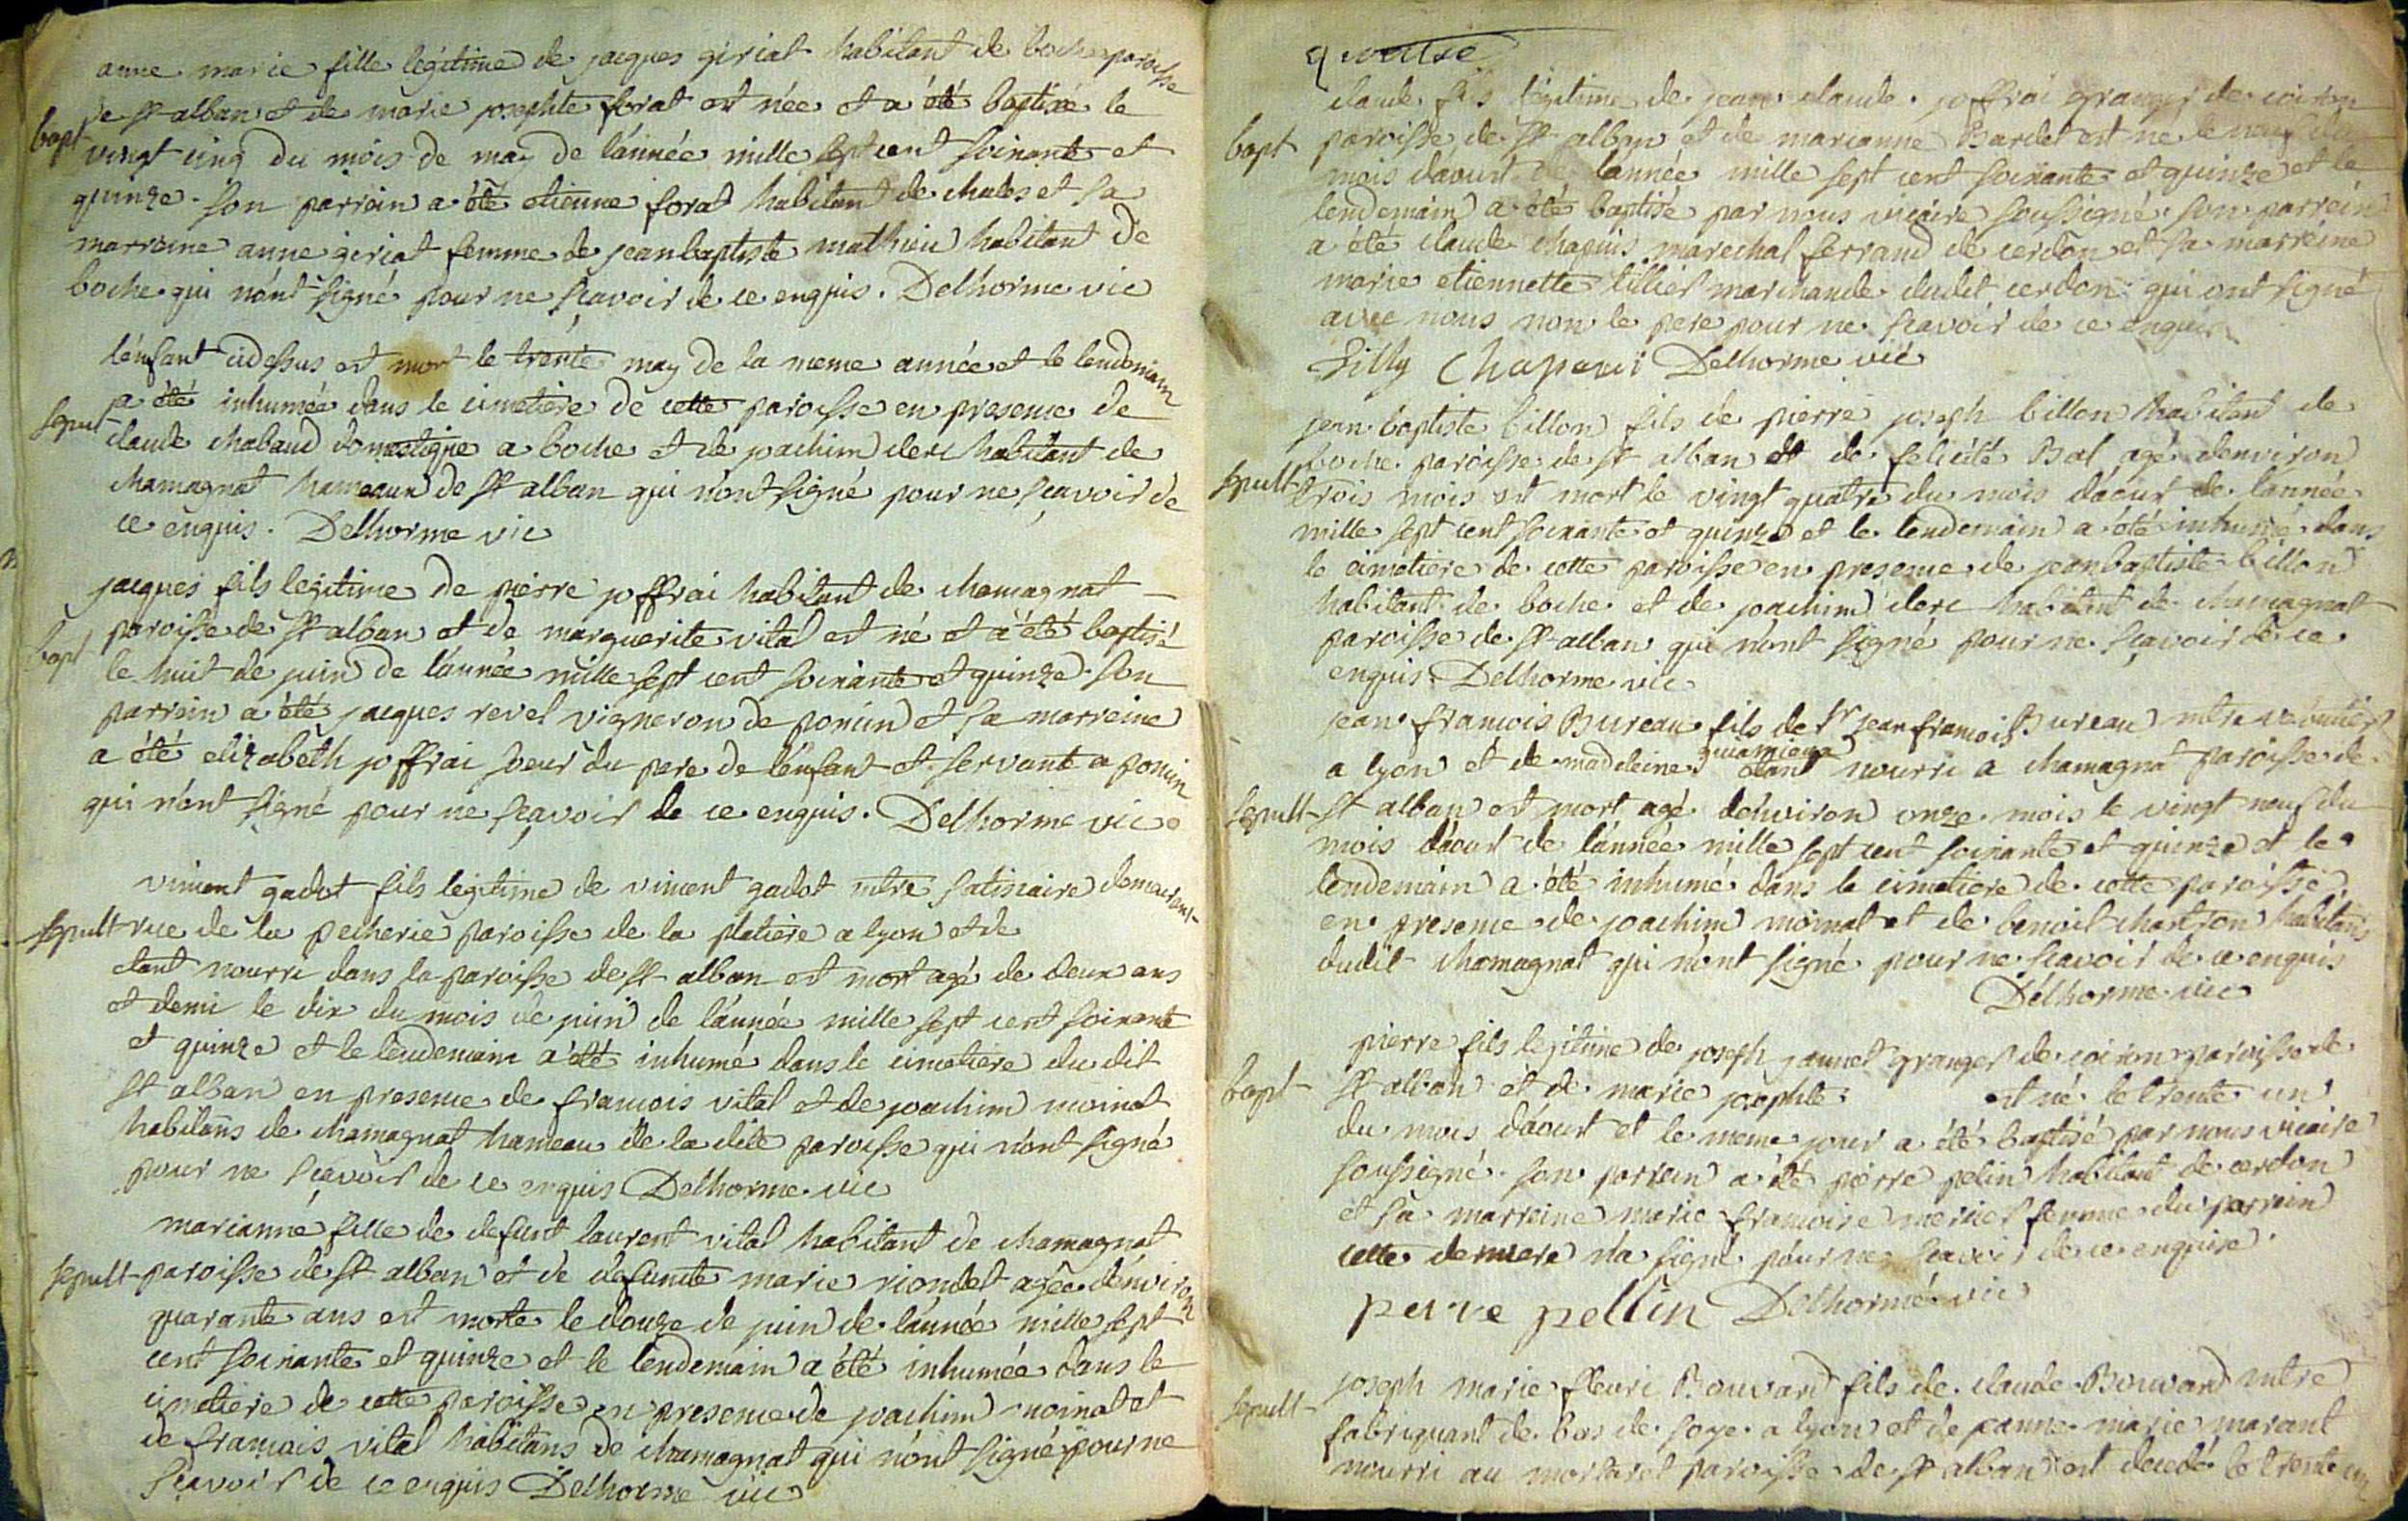 anne marie fille légitime de jacques giriat habitant de boche paroisse
de st alban et de marie josephte forat est née et a été baptisé le
bapt vingt cinq du mois de may de l'année mille sept cent soixante et
quinze. son parrain a été etienne forat habitant de chales et sa
marreine anne giriat femme de jean baptiste mathieu habitant de
boche qui n'ont signé pour ne sçavoir de ce enquis. Delhorme vic
l'enfant cidessus est mort le trente may de la meme année et le lendemain
a été inhumée dans le cimetiere de cette paroisse en presence de
sepult claude chabaud domestique a boche et de joachim clerc habitant de
chamagnat hameaux de st alban qui n'ont signé pour ne sçavoir de
ce enquis. Delhorme vic
jacques fils legitime de pierre joffrai habitant de chamagnat
paroisse de st alban et de marguerite vital est né et a été baptisé
bapt le huit de juin de l'année mille sept cent soixante et quinze. son
parrain a été jacques revel vigneron de poncin et sa marreine
a été elizabeth joffrai soeur du pere de l'enfant et servante a poncin
qui n'ont signé pour ne sçavoir de ce enquis. Delhorme vic
vincent gadot fils legitime de vincent gadot mtre satinaire demeurant
sepult rue de la pecherie paroisse de la platiere a lyon et de
etant nourri dans la paroisse de st alban est mort agé de deux ans
et demi le dix du mois de juin de l'année mille sept cent soixante
et quinze et le lendemain a été inhumé dans le cimetiere du dit
st alban en presence de francois vital et de joachim moinat
habitans de chamagnat hameau de la dite paroisse qui n'ont signé
pour ne sçavoir de ce enquis Delhorme vic
marianne fille de defunt laurent vital habitant de chamagnat
sepult paroisse de st alban et de defunte marie riondet agée denviron
quarante ans est morte le douze de juin de l'année mille sept
cent soixante et quinze et le lendemain a été inhumée dans le
cimetiere de cette paroisse en presence de joachim moinat et
de francois vital habitans de chamagnat qui n'ont signé pour ne
sçavoir de ce enquis Delhorme vic
quatre
claude fils légitime de jean claude joffrai granger de coiron
bapt paroisse de st alban et de marianne Bardet est né le neuf du
mois d'aoust de l'année mille sept cent soixante et quinze et le
lendemain a été baptisé par nous vicaire soussigné. son parrein
a été claude chapuis marechal ferrand de cerdon et sa marreine
marie etiennette tillier marchande dudit cerdon qui ont signé
avec nous non le pere pour ne sçavoir de ce enquis
Chapuis Delhorme vic
jean baptiste billon fils de pierre joseph billon habitant de
boche paroisse de st alban et de felicité Bal agé denviron
sepult trois mois est mort le vingt quatre du mois d'aoust de l'année
mille sept cent soixante et quinze et le lendemain a été inhumé dans
le cimetiere de cette paroisse en presence de jean baptiste billon
habitant de boche et de joachim clerc habitant de chamagnat
paroisse de st alban qui n'ont signé pour ne sçavoir de ce
enquis. Delhorme vic
jean francois Bureau fils de sr jean francois Bureau mtre
a lyon et de madeleine etant nourri a chamagnat paroisse de
sepult st alban est mort agé d'environ onze mois le vingt neuf du
mois d'aoust de l'année mille sept cent soixante et quinze et le
lendemain a été inhumé dans le cimetiere de cette paroisse
en presence de joachim moinat et de benoit chanson habitans
dudit chamagnat qui n'ont signé pour ne sçavoir de ce enquis
Delhorme vic
pierre fils legitime de joseph jannet granger de coiron paroisse de
bapt st alban et de marie josephte est né le trente un
du mois d'aoust et le meme jour a été baptisé par nous vicaire
soussigné. son parrein a été pierre pelin habitant de cerdon
et sa marreine marie francoise mercier femme du parrein
cette derniere n'a signé pour ne sçavoir de ce enquise.
pierre pellin Delhorme vic
joseph marie fleuri Bouvard fils de claude Bouvard mtre
sepult fabriquant de bas de soye a lyon et de jeanne marie marant
nourri au mortaret paroisse de st alban est decedé le trente un